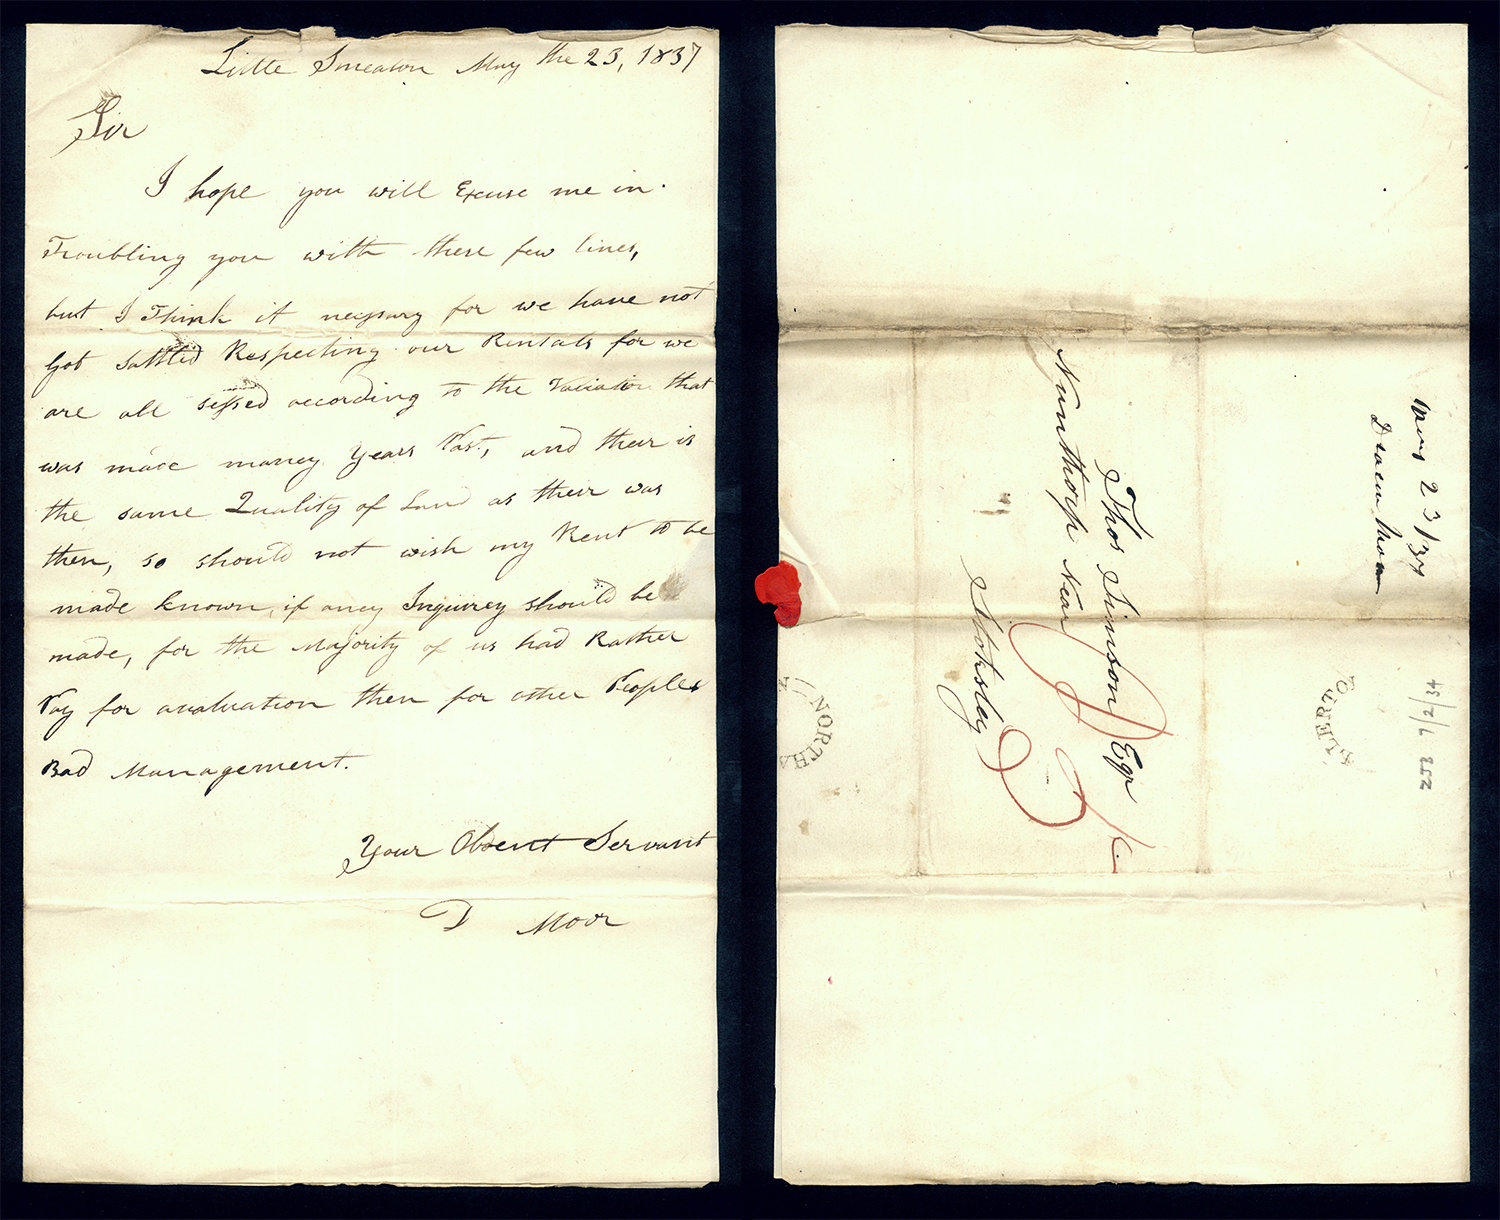 Little Smeaton May the 23, 1837
Sir
I hope you will Excuse me in
Troubling you with these few lines,
but I Think it necessary for we have not
Got Sattled Respecting our Rentals for we
are all sessed according to the Valiation that
was made maney Years Past, and their is
the same Quality of Land as their was
then, so should not wish my Rent to be
made known, if aney Inquirey should be
made, for the Majority of us had Rather
Pay for avaluation then for other Peoples
Bad Management.
Your Obdent Servant
D Moor
Thos Simson Eqr
Nunthorp Near
Stoksley
23/37
Moor
NORTHA
LLERTO
253 7/2/34